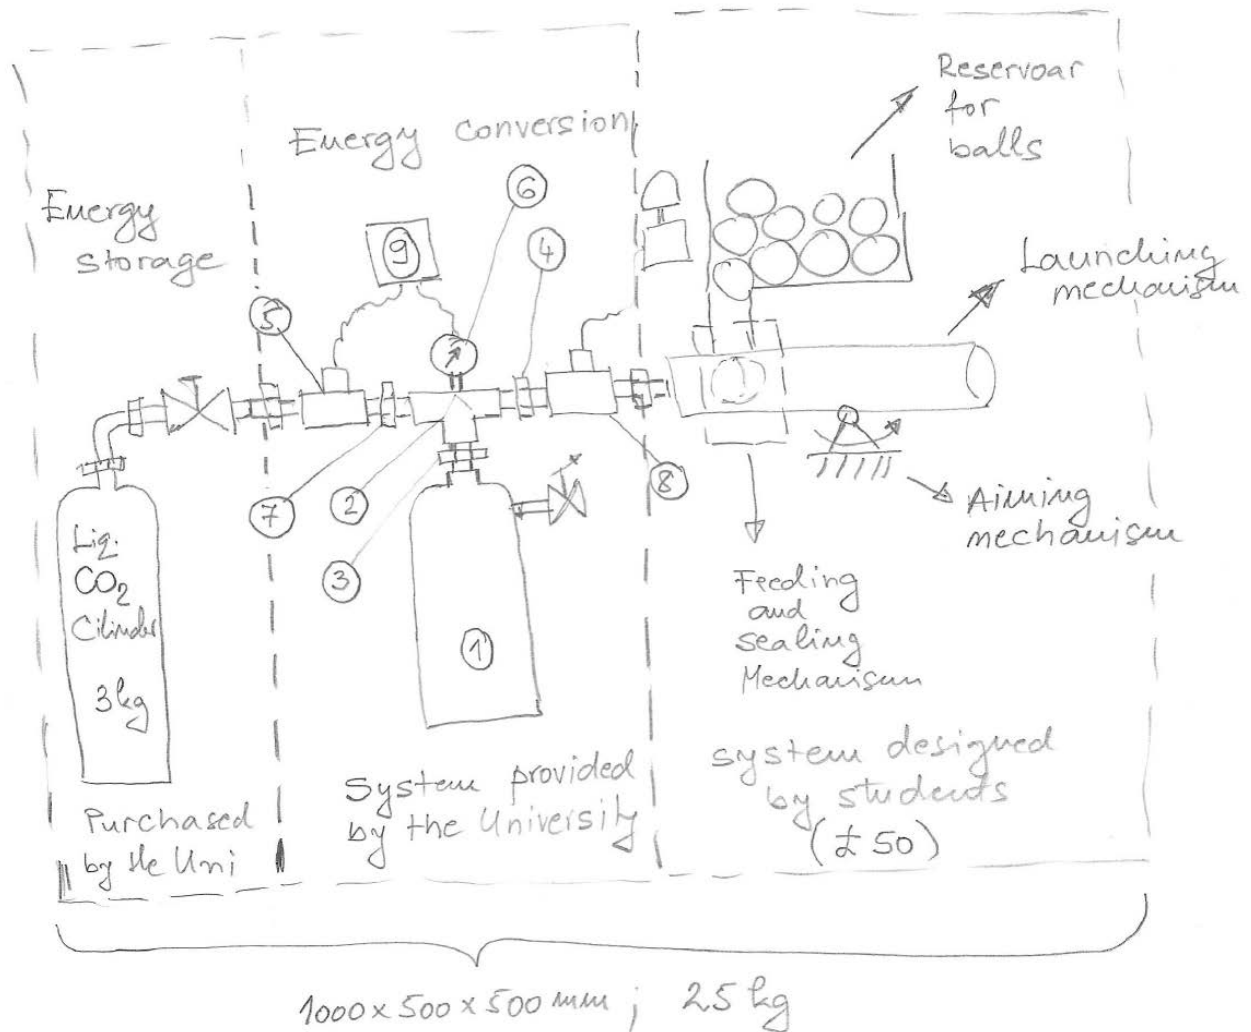 Energy
storage
Energy conversion
Reservoar
for
balls
Launching
mechanism
Aiming
mechanism
Feeding
and
sealing
Mechanism
9
6
4
5
7
2
3
8
1
Liq.
CO2
Cilinder
3kg
Purchased
by the Uni
System provided
by the University
system designed
by students
(£50)
1000 x 500 x 500 mm ; 25 kg